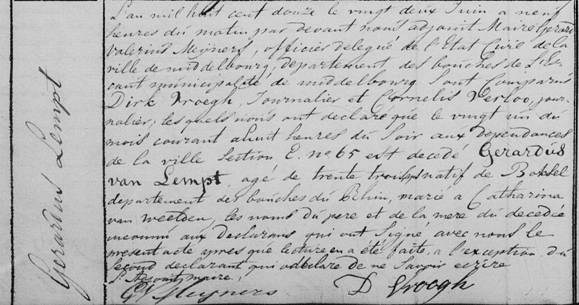 Gerardus Lempt
L'an mil huit cent douze le vingt deux Juin a neuf
heures du matin par devant nous adjoint Maire Gerard
Valerius Meyners, officier delegué de l'Etat Civil de la
ville de middelbourg, departement des bouches de l'Es-
caut municipalité de middelbourg sont Comparus
Dirk Vroegh, Journalier et Cornelis Verloo, jour-
nalier, lesquels nous ont declaré que le vingt un du
mois courant a huit heures du Soir aux Dependances
de la ville Section E. no. 65 est decedé Gerardus
van Lempt, agé de trente trois natif de Boksel
departement des bouches du Rhin, marié a Catharina
van Weelden, les noms du pere et de la mere du decedé
inconnu aux Declarans qui ont Signé avec nous le
present acte apres que lecture en a été faite, a l'exception du
Second declarant qui a declaré de ne Savoir ecrire
L'adjoint maire
G V Meyners D Vroegh